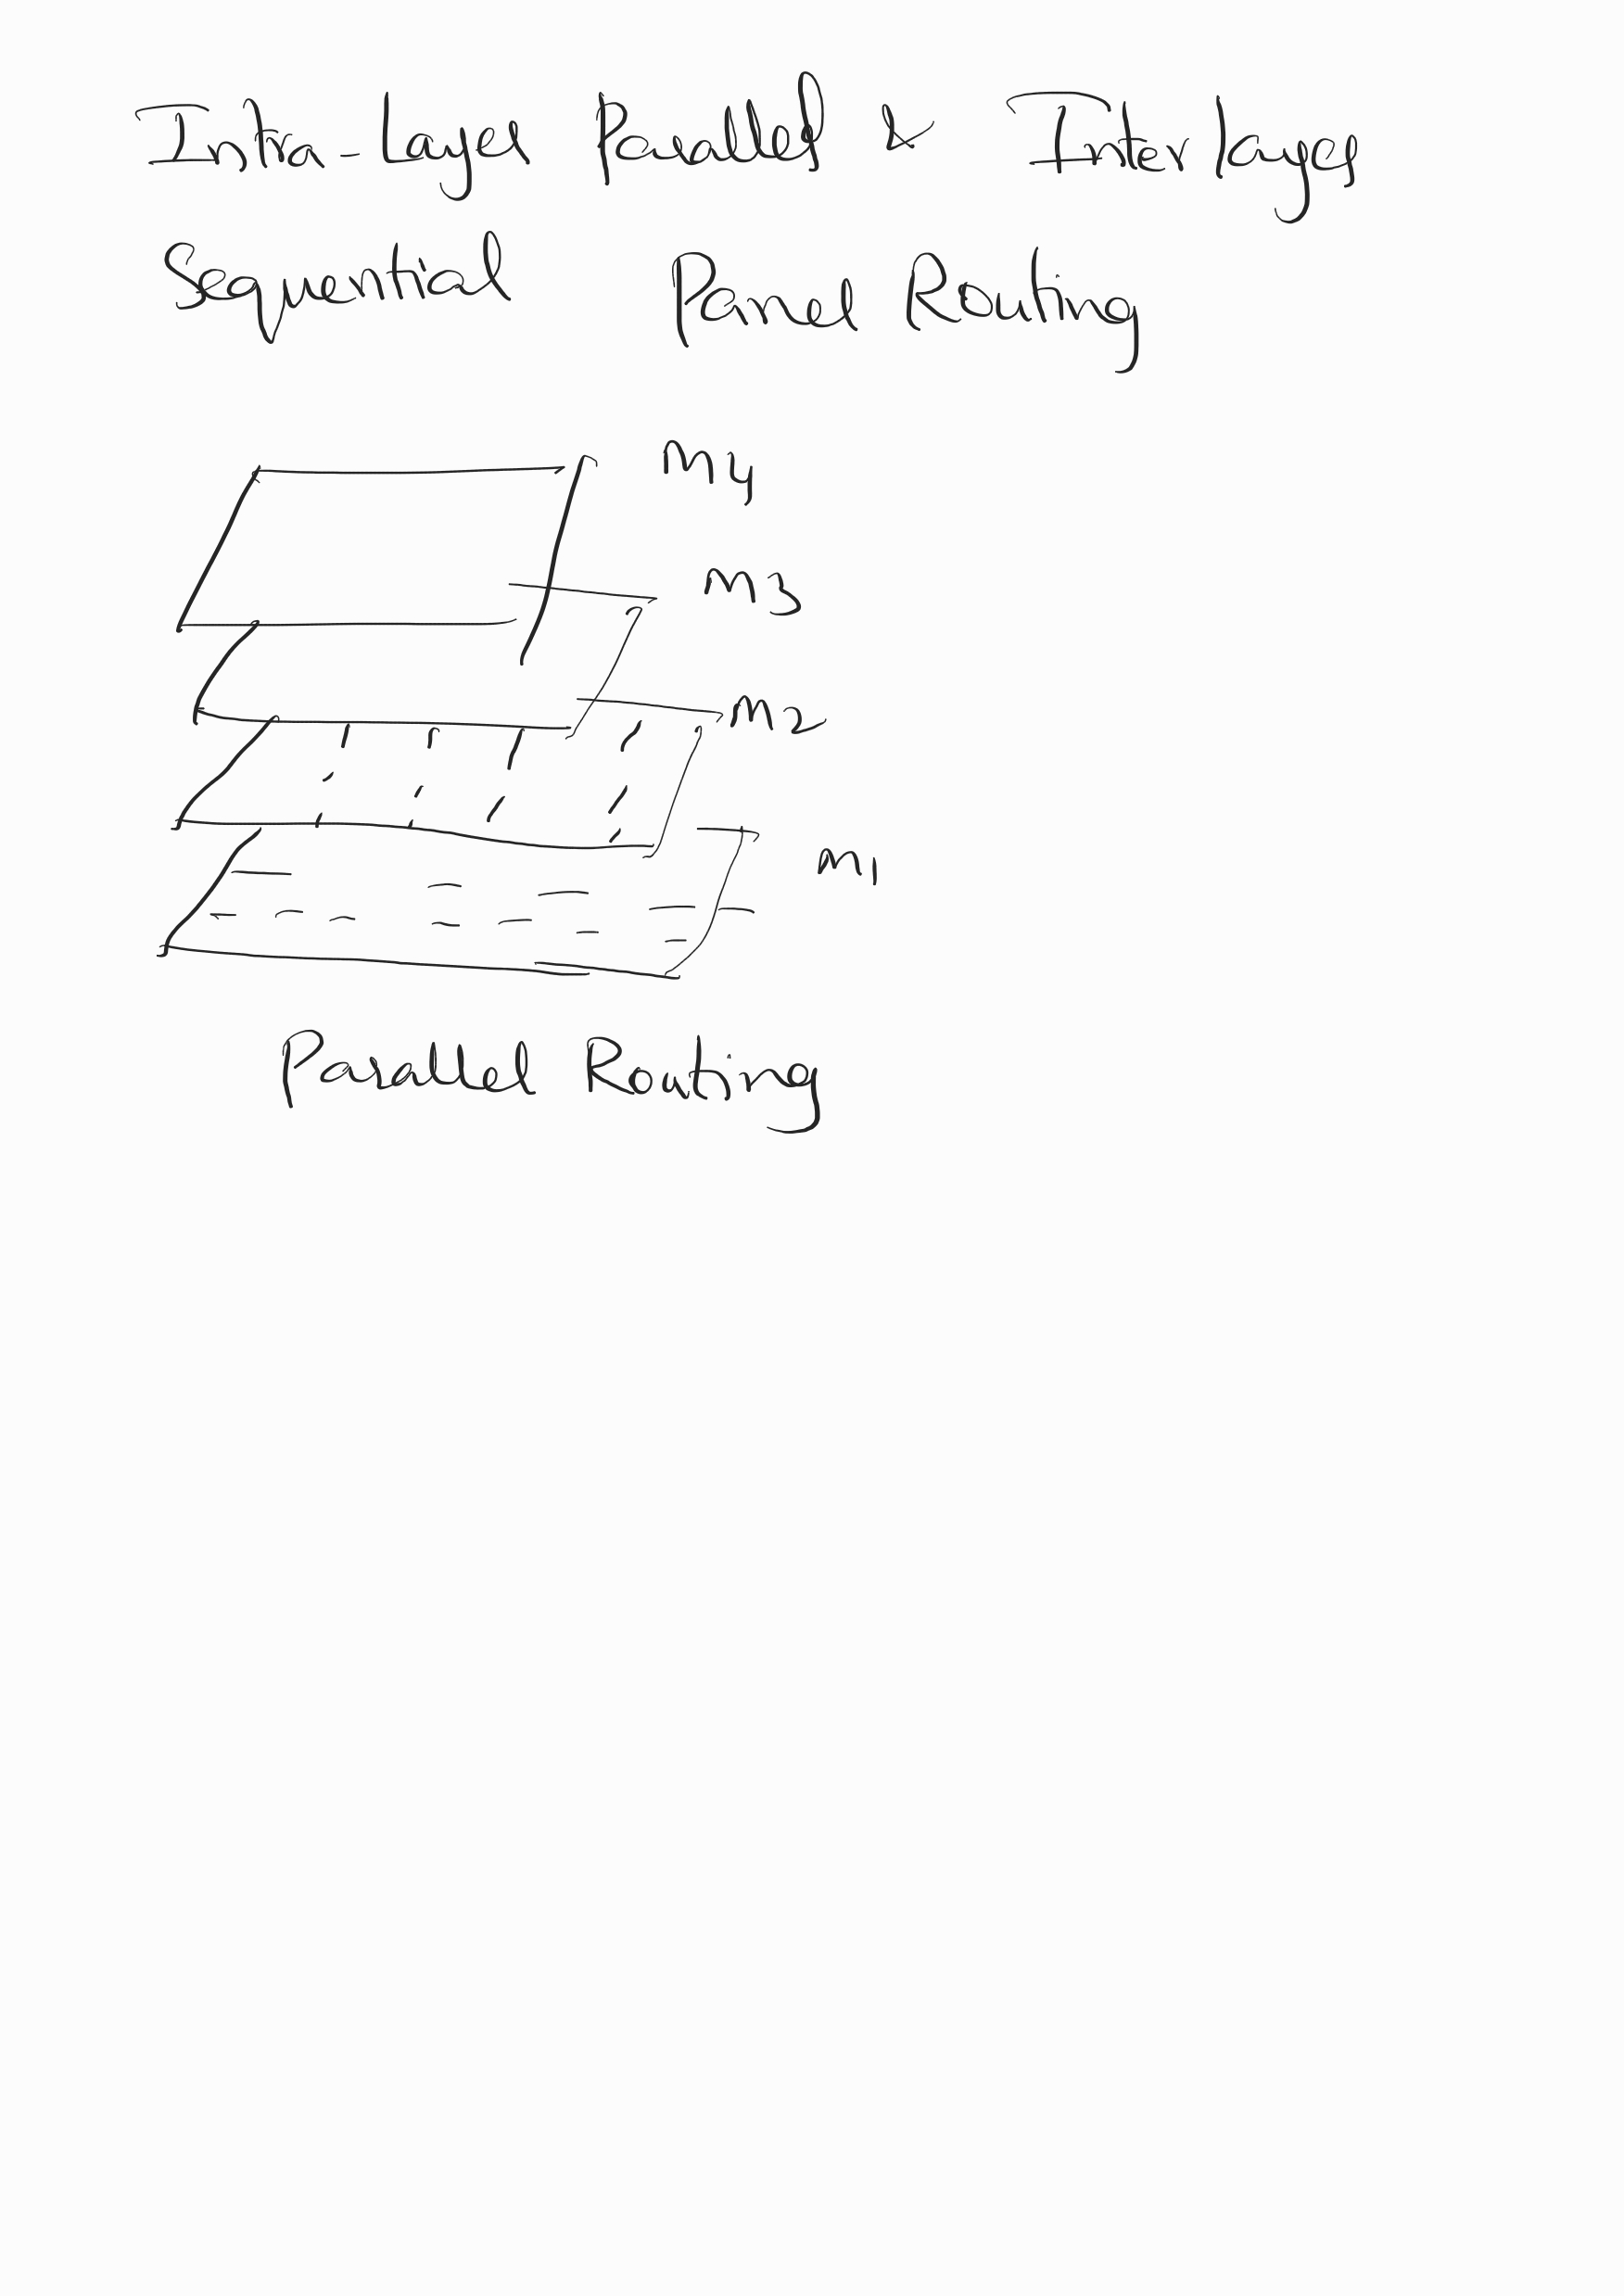 Intra-Layer Parallel & Inter Layer
Sequential Panel Routing
M4
M3
M2
M1
Parallel Routing